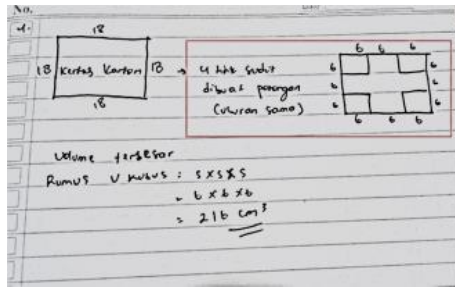 No.
1.
18
18 Kertas Karton 18 → 4 titik sudut
dibuat potongan
(ukuran sama)
18
6 6 6
6 6
6 6
6 6
6 6 6
Volume terbesar
Rumus V kubus : s x s x s
= 6 x 6 x 6
= 216 cm³